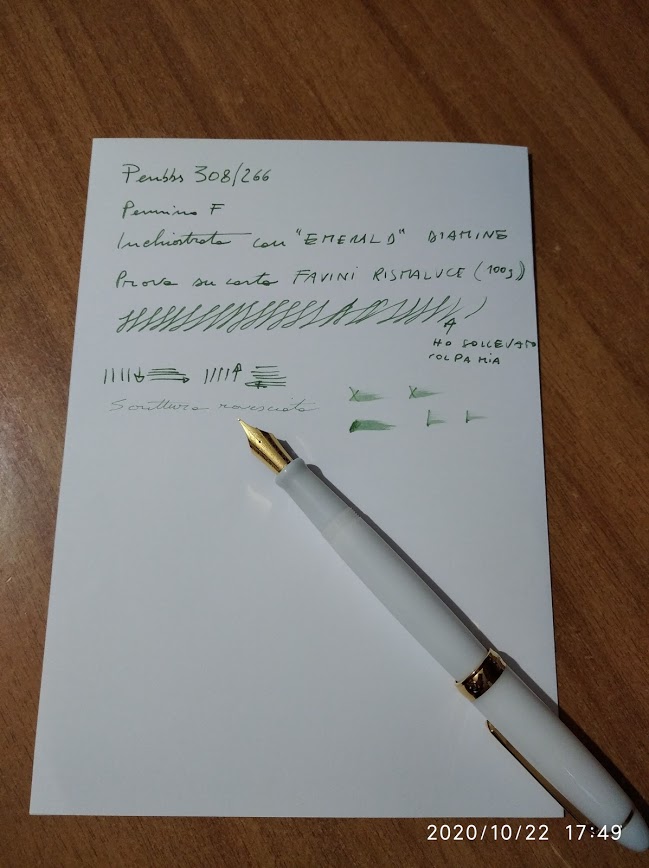 Penbbs 308/266
Pennino F
Inchiostrata con "EMERALD" DIAMINE
Prova su carta FAVINI RISMALUCE (100g)
HO SOLLEVATO
COLPA MIA
Scrittura rovesciata
2020/10/22 17:49